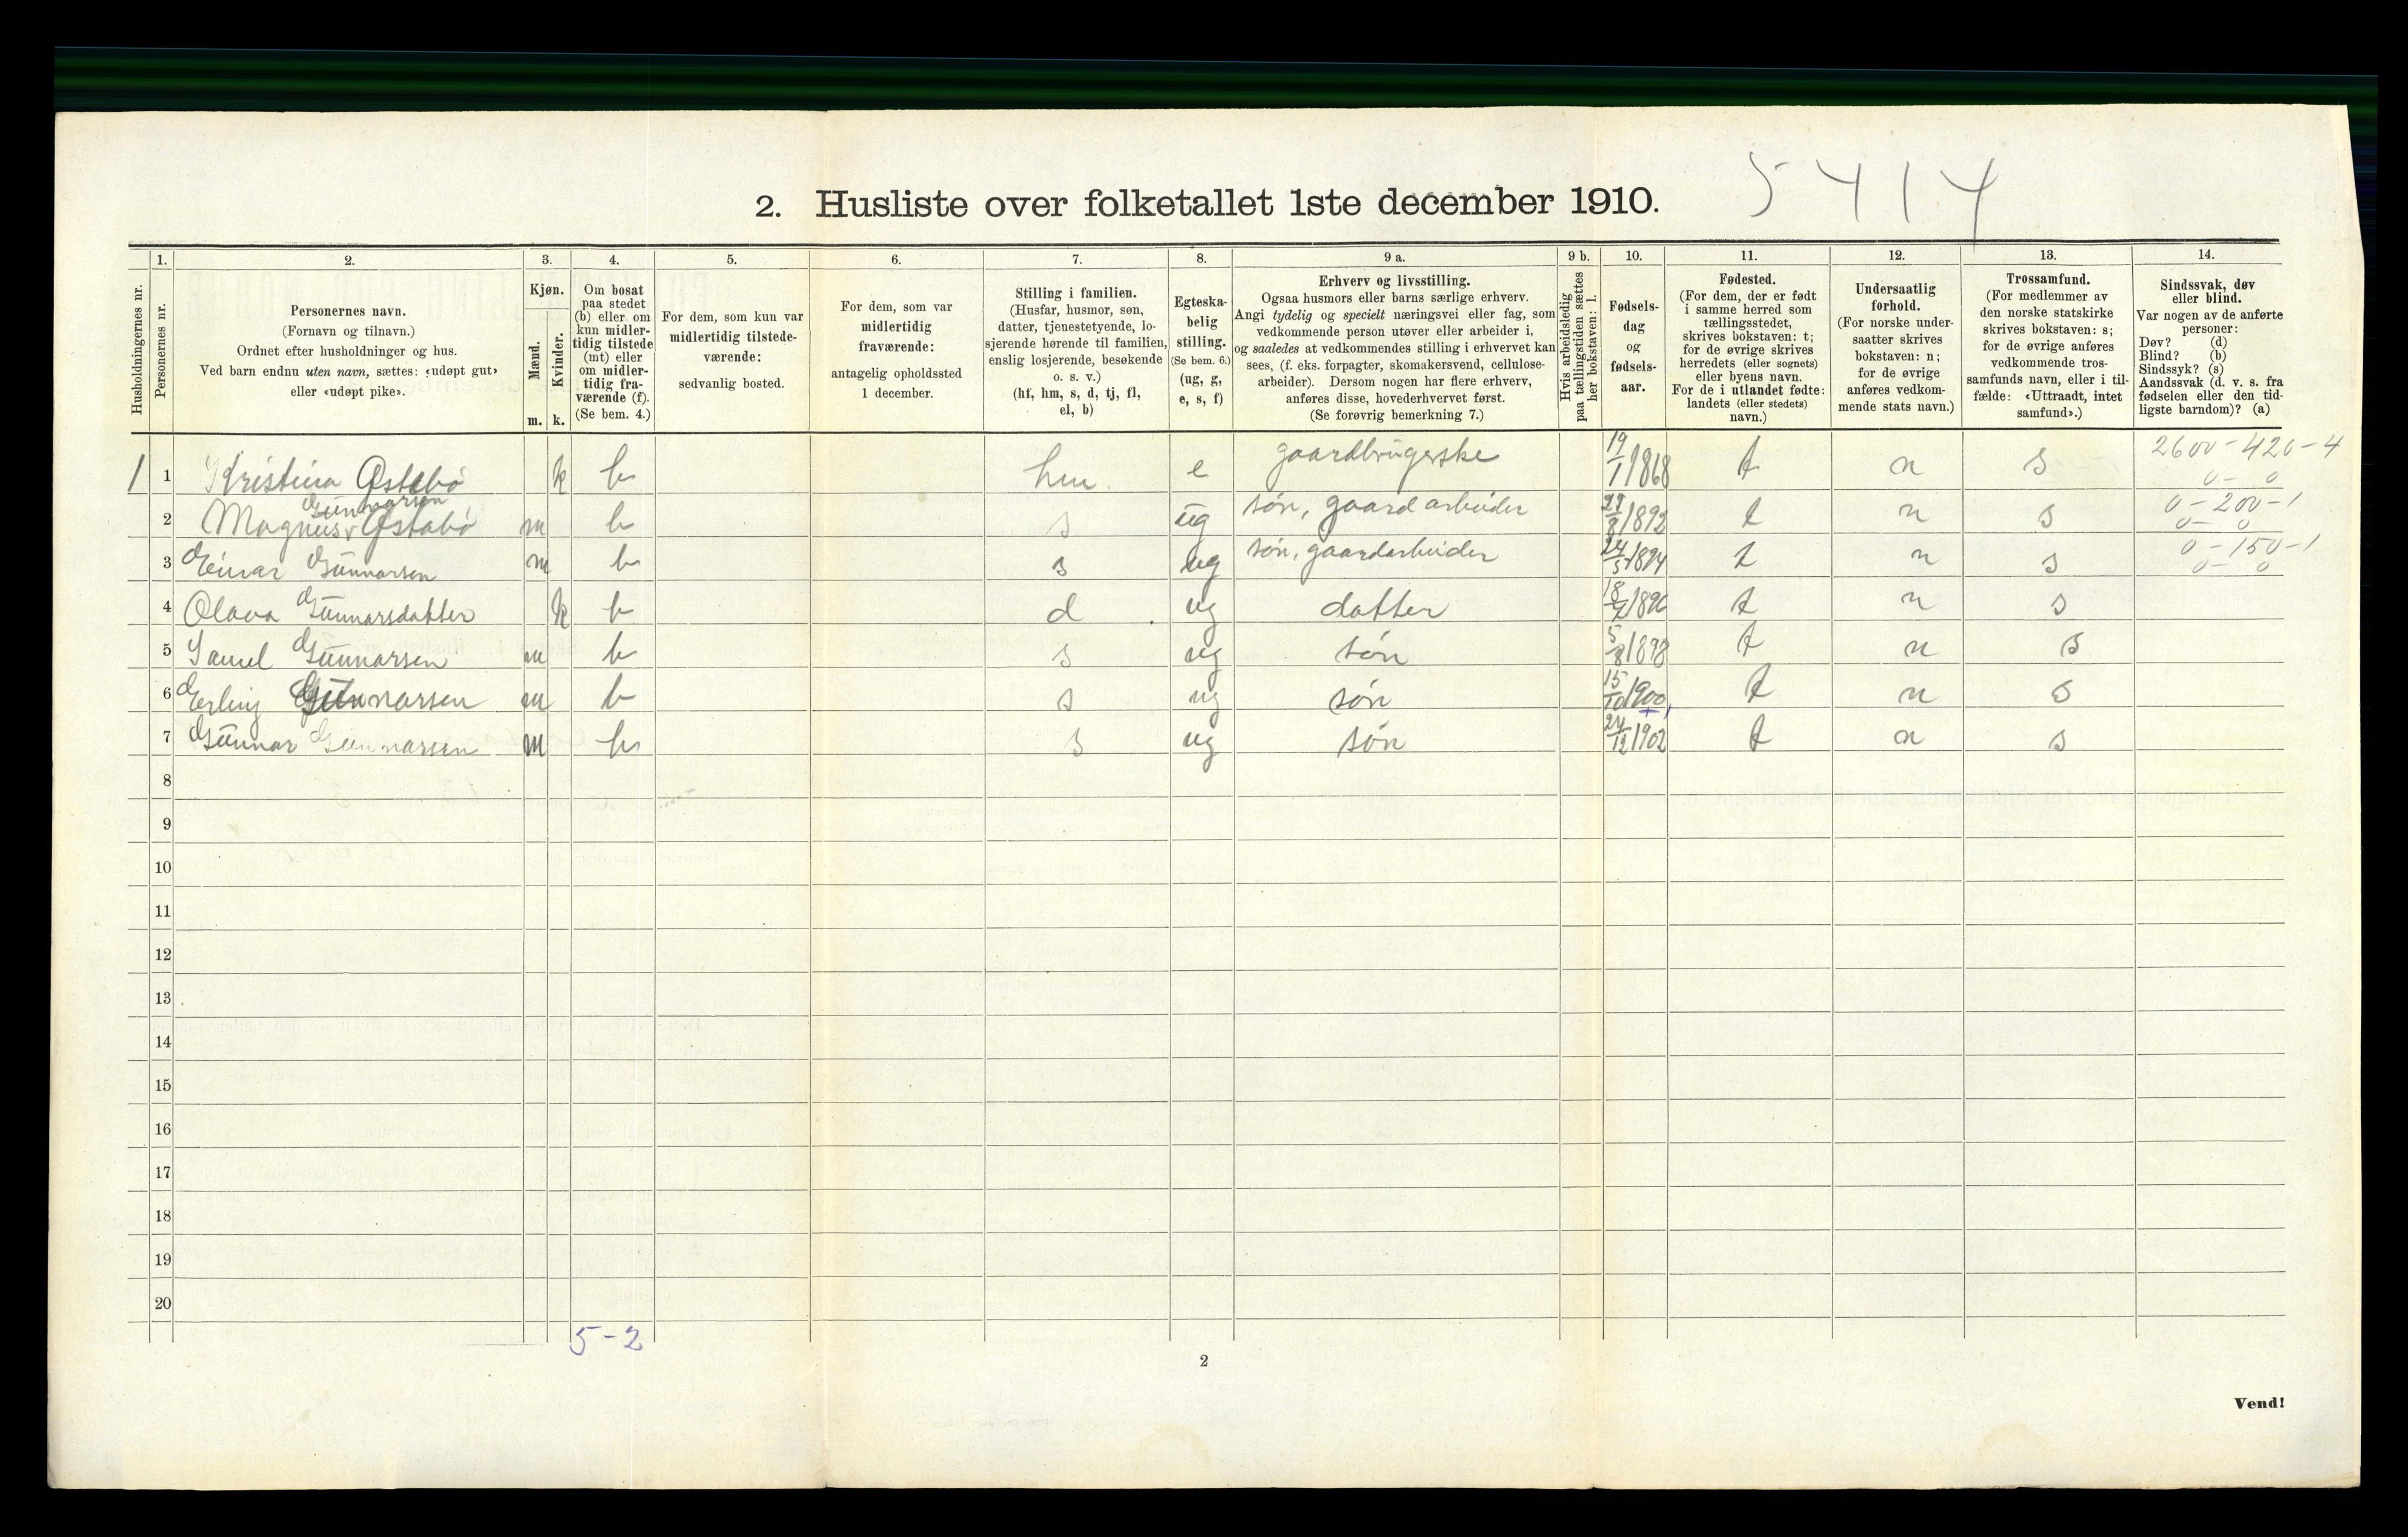 5414
2. Husliste over folketallet 1ste december 1910.
1. 2. 3. 4. 5. 6. 7. 8. 9 a. 9 b. 10. 11. 12. 13. 14.
Husholdningernes nr.
Personernes nr.
Personernes navn.
(Fornavn og tilnavn.)
Ordnet efter husholdninger og hus.
Ved barn endnu uten navn, sættes: «udøpt gut»
eller «udøpt pike».
Kjøn.
Mænd.
Kvinder.
m. k.
Om bosat
paa stedet
(b) eller om
kun midler-
tidig tilstede
(mt) eller
om midler-
tidig fra-
værende (f).
(Se bem. 4.)
For dem, som kun var
midlertidig tilstede-
værende:
sedvanlig bosted.
For dem, som var
midlertidig
fraværende:
antagelig opholdssted
1 december.
Stilling i familien.
(Husfar, husmor, søn,
datter, tjenestetyende, lo-
sjerende hørende til familien,
enslig losjerende, besøkende
o. s. v.)
(hf, hm, s, d, tj, fl,
el, b)
Egteska-
belig
stilling.
(Se bem. 6.)
(ug, g,
e, s, f)
Erhverv og livsstilling.
Ogsaa husmors eller barns særlige erhverv.
Angi tydelig og specielt næringsvei eller fag, som
vedkommende person utøver eller arbeider i,
og saaledes at vedkommendes stilling i erhvervet kan
sees, (f. eks. forpagter, skomakersvend, cellulose-
arbeider). Dersom nogen har flere erhverv,
anføres disse, hovederhvervet først.
(Se forøvrig bemerkning 7.)
Hvis arbeidsledig
paa tællingstiden sættes
her bokstaven: l.
Fødsels-
dag
og
fødsels-
aar.
Fødested.
(For dem, der er født
i samme herred som
tællingsstedet,
skrives bokstaven: t;
for de øvrige skrives
herredets (eller sognets)
eller byens navn.
For de i utlandet fødte:
landets (eller stedets)
navn.)
Undersaatlig
forhold.
(For norske under-
saatter skrives
bokstaven: n;
for de øvrige
anføres vedkom-
mende stats navn.)
Trossamfund.
(For medlemmer av
den norske statskirke
skrives bokstaven: s;
for de øvrige anføres
vedkommende tros-
samfunds navn, eller i til-
fælde: «Uttraadt, intet
samfund».)
Sindssvak, døv
eller blind.
Var nogen av de anførte
personer:
Døv? (d)
Blind? (b)
Sindssyk? (s)
Aandssvak (d. v. s. fra
fødselen eller den tid-
ligste barndom)? (a)
1 1 Kristina Østebø k b hm e gaardbrugerske 19/1 1868 t n s 2600-420-4 0-0
2 Magnus Gunnarsen Østebø m b s ug søn, gaardarbeider 27/8 1892 t n s 0-200-1 0-0
3 Einar Gunnarsen m b s ug søn, gaardarbeider 24/5 1894 t n s 0-150-1 0-0
4 Olava Gunnarsdatter k b d ug datter 1896 t n s
5 Samel Gunnarsen m b s ug søn 5/8 1898 t n s
6 Erling Gunnarsen m b s ug søn 15/10 1900 t n s
7 Gunnar Gunnarsen m b s ug søn 24/12 1902 t n s
8
9
10
11
12
13
14
15
16
17
18
19
20
5-2
2
Vend!